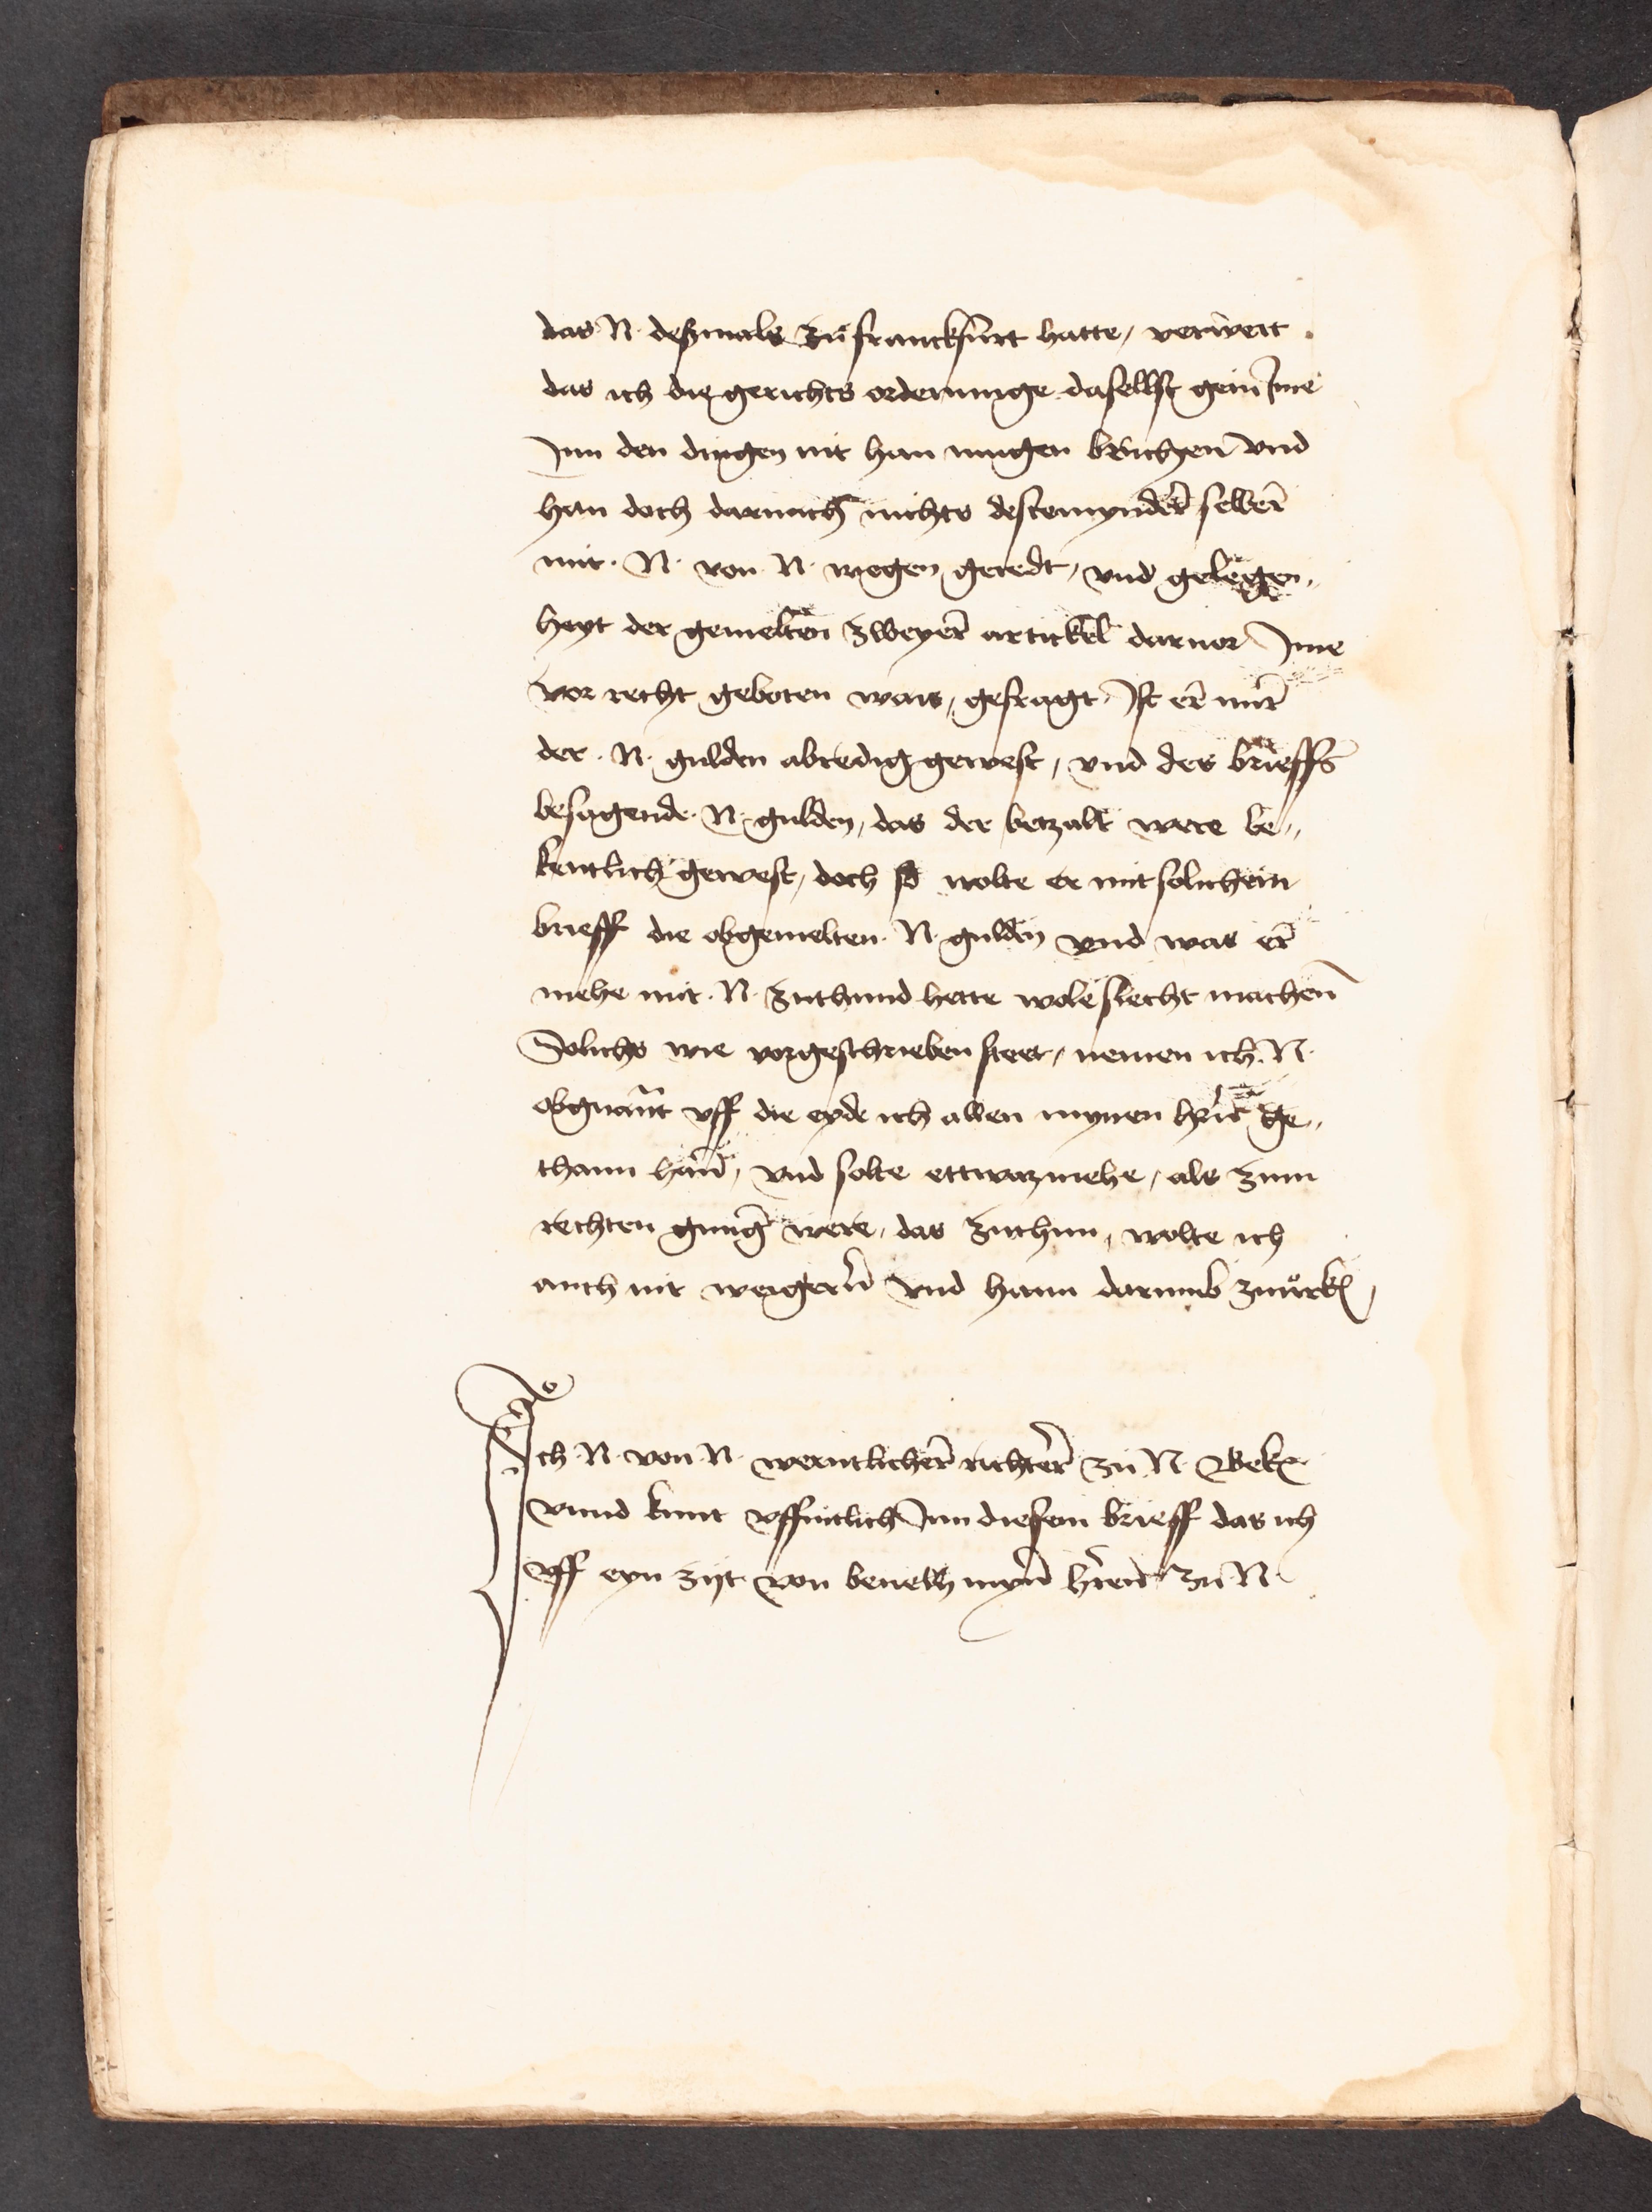 das N. deßmals zu franckfurt hatte, verwert
das ich die gerichts ordenunge daselbst gein Ime
Inn den dingen nit han mugen bruchen vnd
han doch darnach nichts destemynder selber
mit. N. von N. wegen geredt, vnd gelegen„
heyt der gemelten zweyer artickel daruor Ime
vor recht geboten was, gefragt, Ist er mir
der. N. gulden abredig gewest, vnd des brieffs
besagende. N. gulden, das der betzalt were be„
kentlich gewest, doch so wolte er mit solichem
brieff die obgemelten. N. gulden vnd was er
mehe mit. N. zuthund hette wole slecht machen
Solichs wie vorgeschrieben steet, nemen ich. N.
obgnant vff die eyde ich allen mynen hern ge„
thann hand, vnd solte ettwaz mehe, als zum
rechten gnug were, das zuthun, wolte ich
auch nit weigern vnd hann darumb zu vrk
Ich N. von N. werntlicher richter zu N. Bek
vnnd kunt vffintlich Inn diesem brieff das ich
vff eyn zijt von beuelh myn hern zu N.